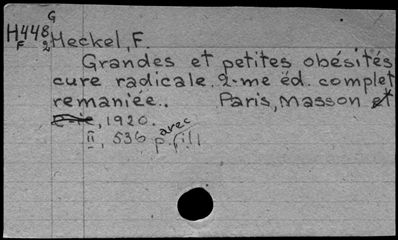 G
H448
F 2
Heckel, F.
Grandes et petites obésités
cure radicale. 2-me éd. complet
remaniée.. Paris, Masson et
, 1920.
II, 536 p. avec fill